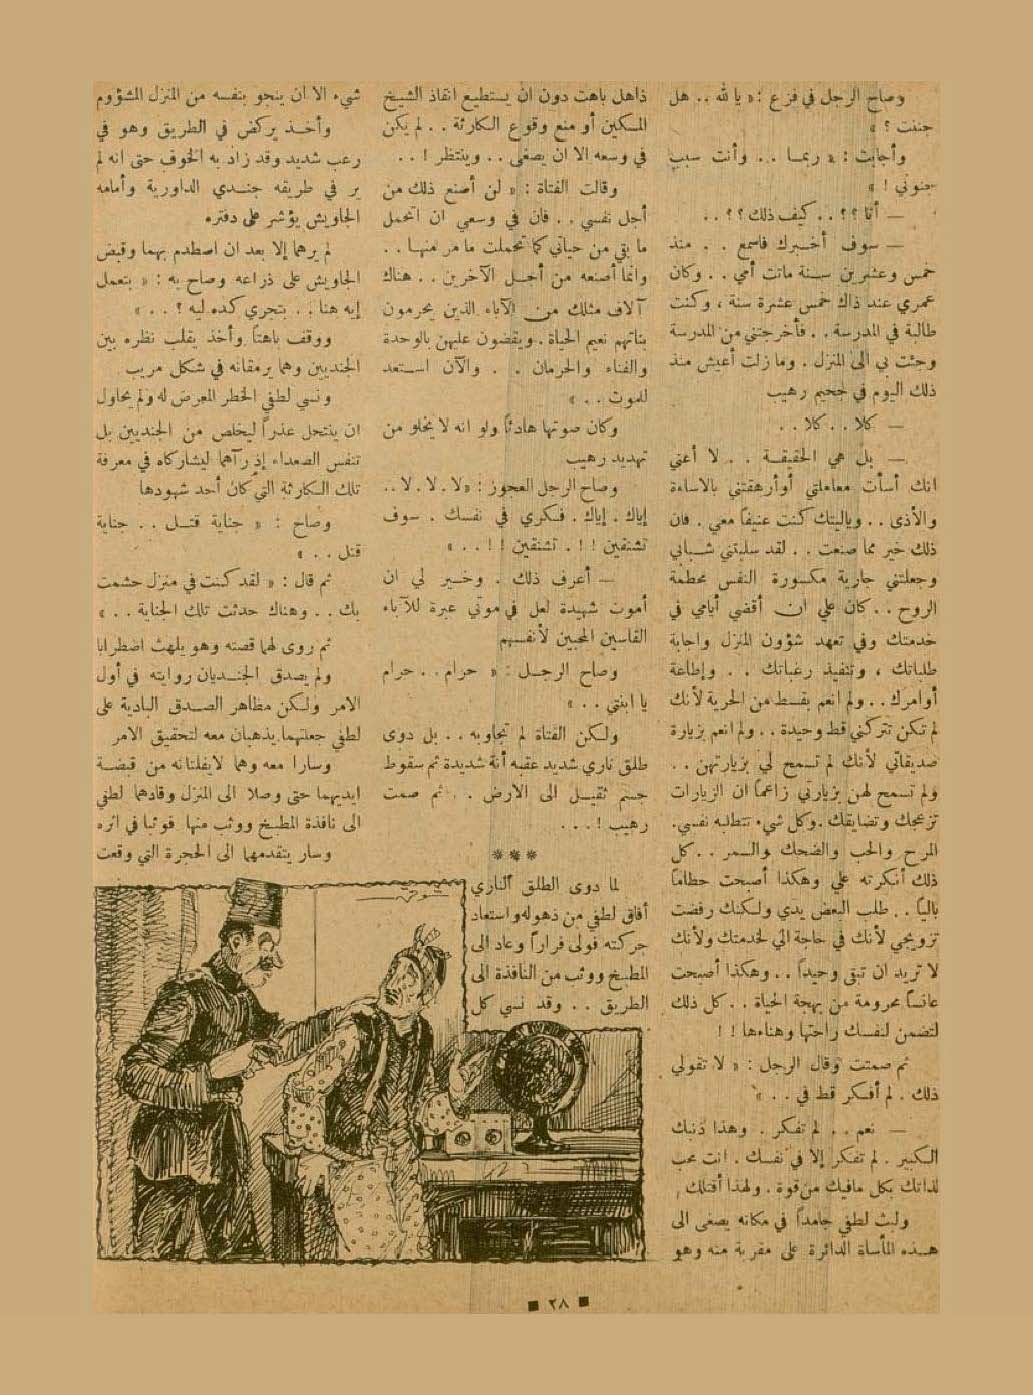 وصاح الرجل في فزع : « يا لله .. هل
جننت ؟ »
وأجابت : « ربمـا .. وأنت سبب
جنوني ! »
— أنا ؟؟ .. كيف ذلك ؟؟ ..
— سوف أخبرك فاسمع .. منذ
خمس وعشرين سـنة ماتت أمي .. وكان
عمري عند ذاك خمس عشرة سنة ، وكنت
طالبة في المدرسة .. فأخرجتني من المدرسة
وجئت بي الى المنزل . وما زلت أعيش منذ
ذلك اليوم في جحيم رهيب
— كلا .. كلا ..
— بل هي الحقيقـة .. لا أعني
انك أسأت معاملتي أو أرهقتني بالاساءة
والأذى .. وياليتك كنت عنيفاً معي . فان
ذلك خير مما صنعت .. لقد سلبتني شـبابي
وجعلتني جارية مكسورة النفس محطمة
الروح .. كان علي ان أقضي أيامي في
خدمتك وفي تعهد شؤون المنزل واجابة
طلباتك ، وتنفيذ رغباتك .. وإطاعة
أوامرك .. ولم انعم بقسط من الحرية لأنك
لم تكن تتركني قط وحيدة .. ولم انعم بزيارة
صديقاتي لأنك لم تسمح لي بزيارتهن ..
ولم تسمح لهن بزيارتي زاعماً ان الزيارات
تزعجك وتضايقك . وكل شيء تتطلبه نفسي .
المرح والحب والضحك والسمر .. كل
ذلك أنكرته علي وهكذا أصبحت حطاماً
بالياً .. طلب البعض يدي ولكنك رفضت
تزويجي لأنك في حاجة الي لخدمتك ولأنك
لا تريد ان تبقى وحيداً .. وهكذا أصبحت
عانساً محرومة من بهجة الحياة .. كل ذلك
لتضمن لنفسك راحتها وهناءها ! !
ثم صمتت وقال الرجل : « لا تقولي
ذلك . لم أفكر قط في .. »
— نعم .. لم تفكر . وهذا ذنبك
الكبير . لم تفكر إلا في نفسك . انت محب
لذاتك بكل مافيك من قوة . ولهذا أقتلك .
ولبث لطفي جامداً في مكانه يصغى الى
هـذه المأساة الدائرة على مقربة منه وهو
ذاهل باهت دون ان يستطيع انقاذ الشيخ
المسكين أو منع وقوع الكارثة .. لم يكن
في وسعه الا ان يصغى .. وينتظر ! ..
وقالت الفتاة : « لن أصنع ذلك من
أجل نفسي .. فان في وسعي ان اتحمل
ما بقي من حياتي كما تحملت ما مر منهـا ..
وانما أصنعه من أجـل الآخرين .. هناك
آلاف مثلك من الآباء الذين يحرمون
بناتهم نعيم الحياة . ويقضون عليهن بالوحدة
والفناء والحرمان .. والآن اسـتعد
للموت .. »
وكان صوتها هادئاً ولو انه لا يخلو من
تهديد رهيب
وصاح الرجل العجوز : « لا . لا . لا ..
إياك . إياك . فـكري في نفسك . سوف
تشنقين ! ! . تشنقين ! ! .. »
— أعرف ذلك . وخـير لي ان
أموت شهيدة لعل في موتي عبرة للآباء
القاسين المحبين لأنفسهم
وصاح الرجـل : « حرام .. حرام
يا ابنتي .. »
ولـكن الفتاة لم تجاوبه .. بل دوى
طلق ناري شديد عقبه أنة شديدة ثم سقوط
جسم ثقيـل الى الارض .. ثم صمت
رهيب ! ...
***
لما دوى الطلق الناري
أفاق لطفي من ذهوله واستعاد
حركته فولى فراراً وعاد الى
المطبـخ ووثب من النافذة الى
الطريق .. وقد نسي كل
شيء الا ان ينجو بنفسه من المنزل المشؤوم
وأخـذ يركض في الطريق وهو في
رعب شديد وقد زاد به الخوف حتى انه لم
ير في طريقه جنـدي الداورية وأمامه
الجاويش يؤشر على دفتره
لم يرهما إلا بعد ان اصطدم بهما وقبض
الجاويش على ذراعه وصاح به : « بتعمل
إيه هنا .. بتجري كده ليه ؟ .. »
ووقف باهتاً وأخذ يقلب نظره بين
الجنديين وهما يرمقانه في شكل مريب
ونسي لطفي الخطر المعرض له ولم يحاول
ان ينتحل عذراً ليخلص من الجنديين بل
تنفس الصعداء إذ رآهما ليشاركاه في معرفة
تلك الكارثة التي كان أحد شهودها
وصاح : « جناية قتـل .. جناية
قتل .. »
ثم قال : « لقد كنت في منزل حشمت
بك .. وهناك حدثت تلك الجناية .. »
ثم روى لهما قصته وهو يلهث اضطرابا
ولم يصدق الجنـديان روايته في أول
الامر ولـكن مظاهر الصـدق البادية على
لطفي جعلتهما يذهبان معه لتحقيق الامر
وسارا معه وهما لا يفلتانه من قبضـة
ايديهما حتى وصلا الى المنزل وقادهما لطفي
الى نافذة المطبـخ ووثب منها فوثبا في اثره
وسار يتقدمهما الى الحجرة التي وقعت
■ ٢٨ ■